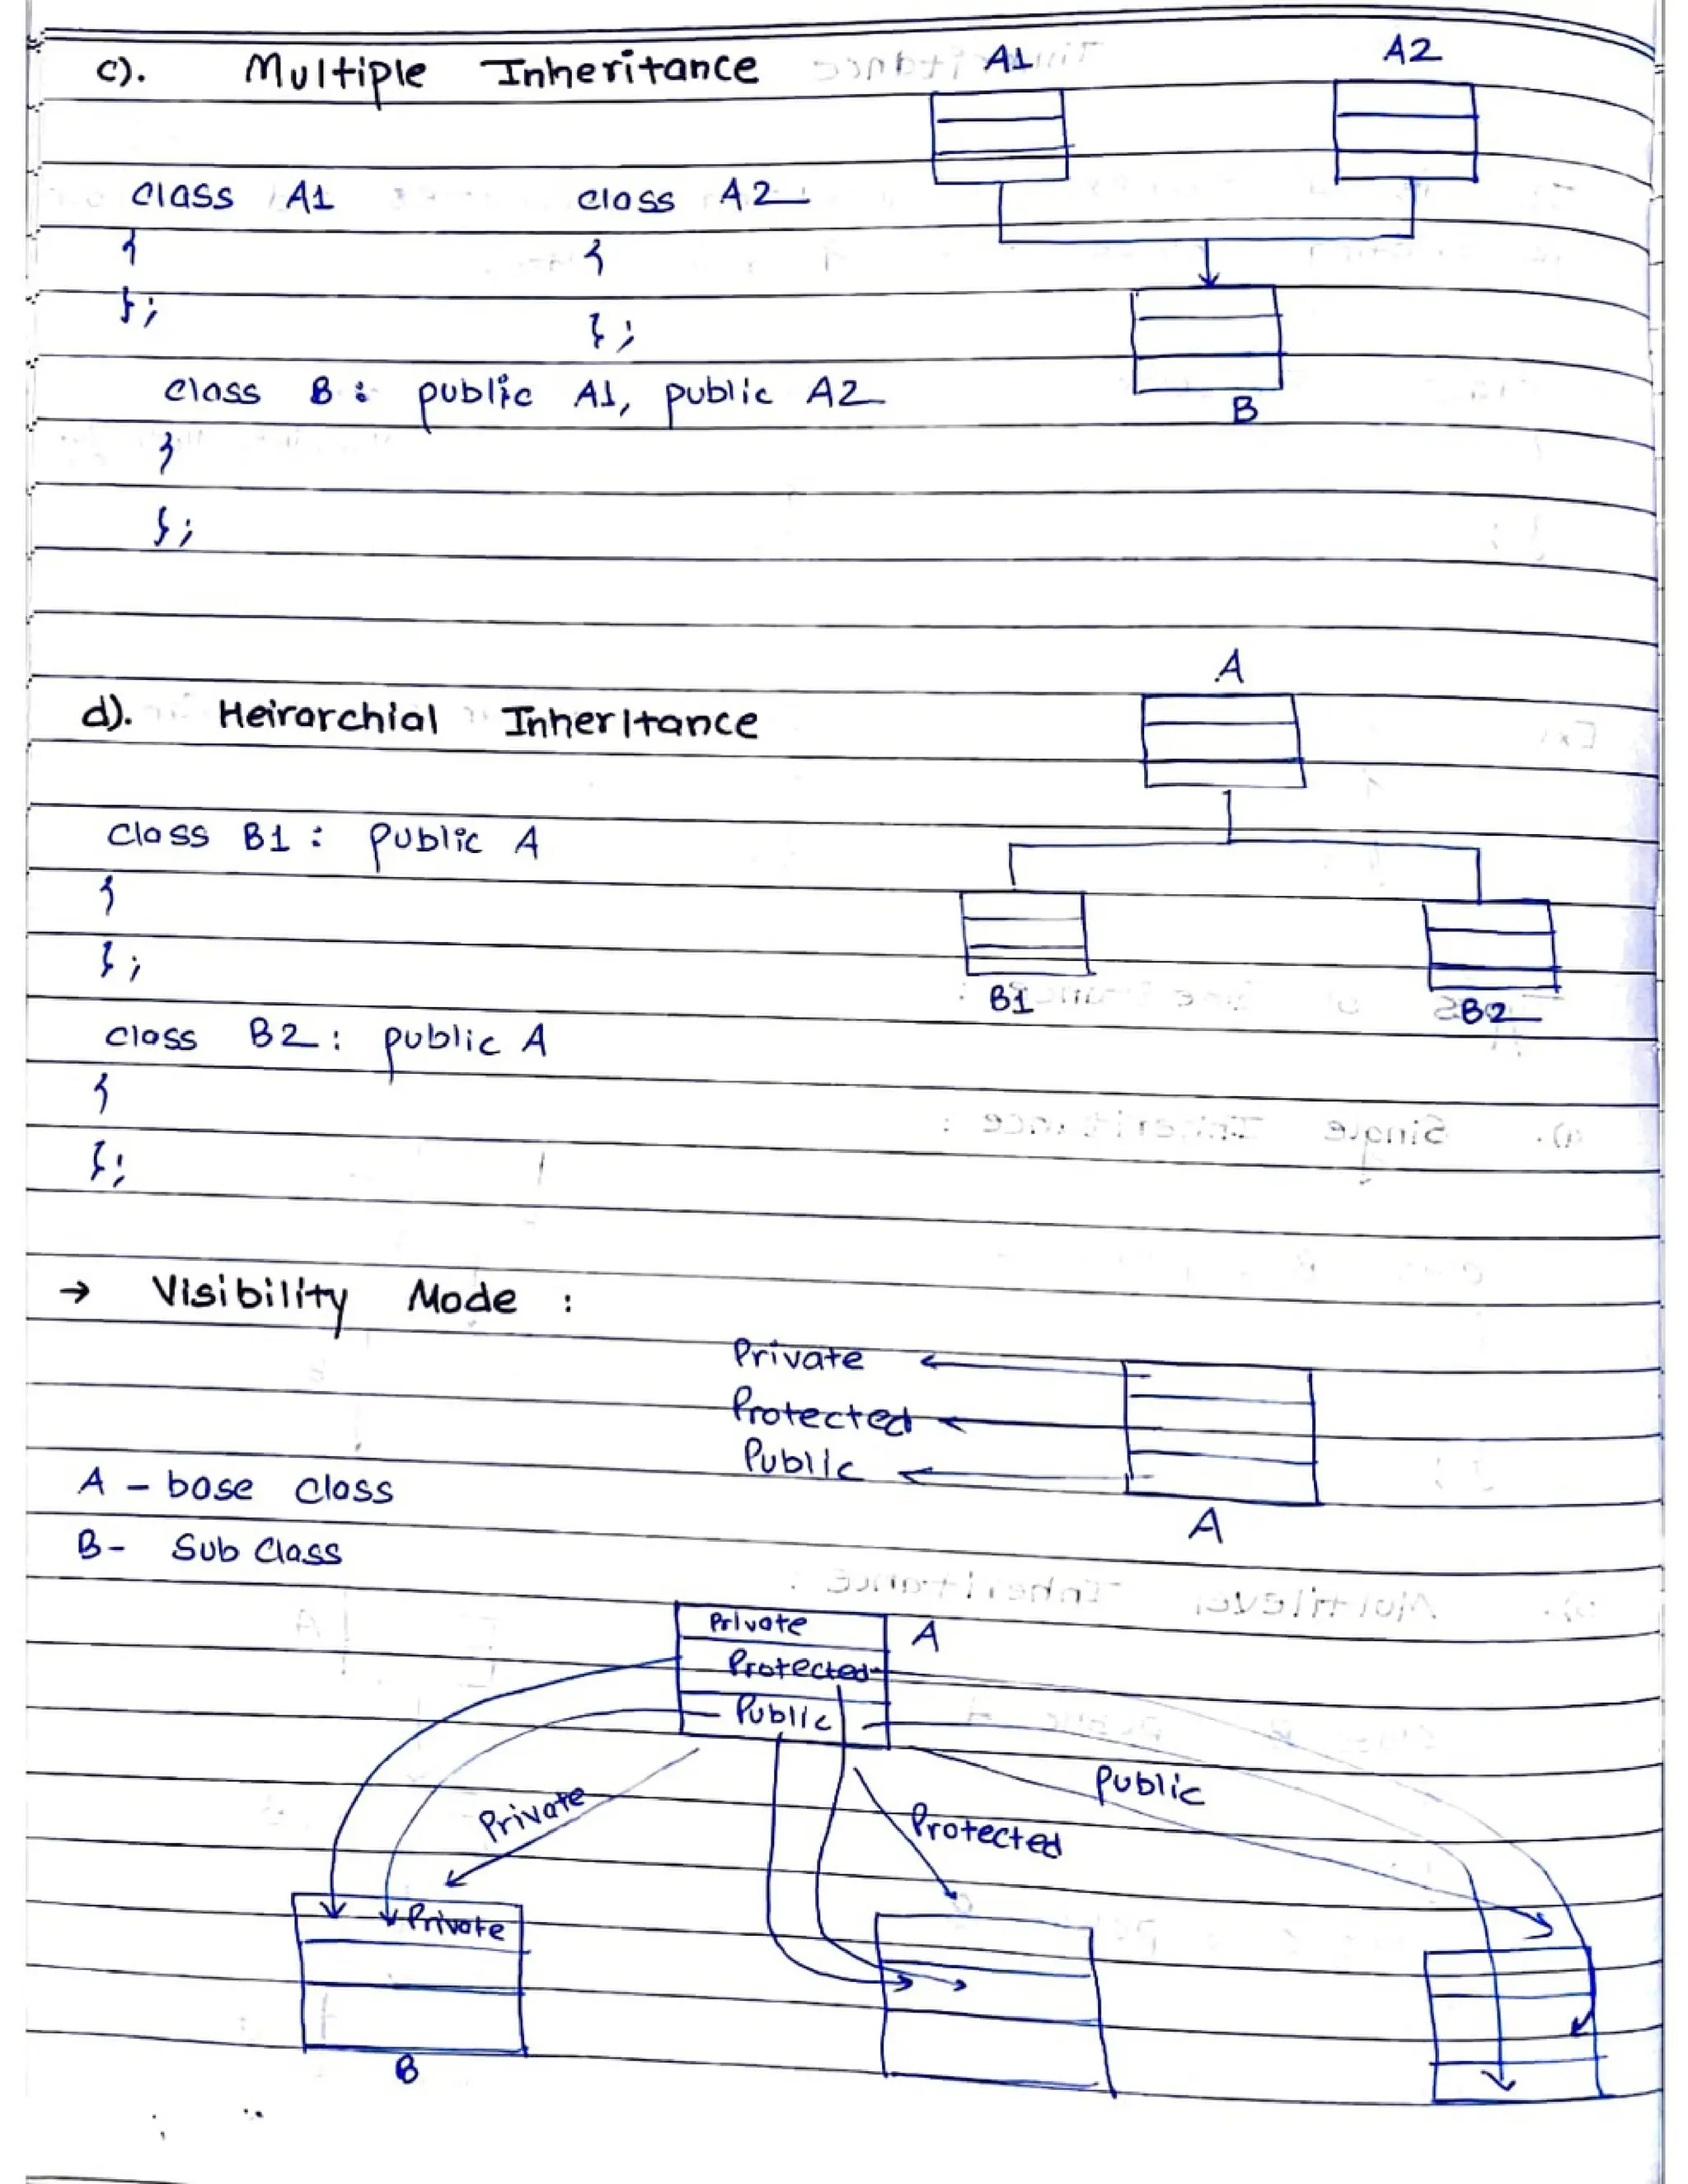 c). Multiple Inheritance
A1 A2
class A1 class A2
{ {
}; };
class B : public A1, public A2
B
{
};
A
d). Heirarchial Inheritance
class B1 : public A
{
};
B1 B2
class B2 : public A
{
};
→ Visibility Mode :
Private
Protected
Public
A - base class
A
B- Sub Class
Private A
Protected
Public
Private Protected Public
Private
B